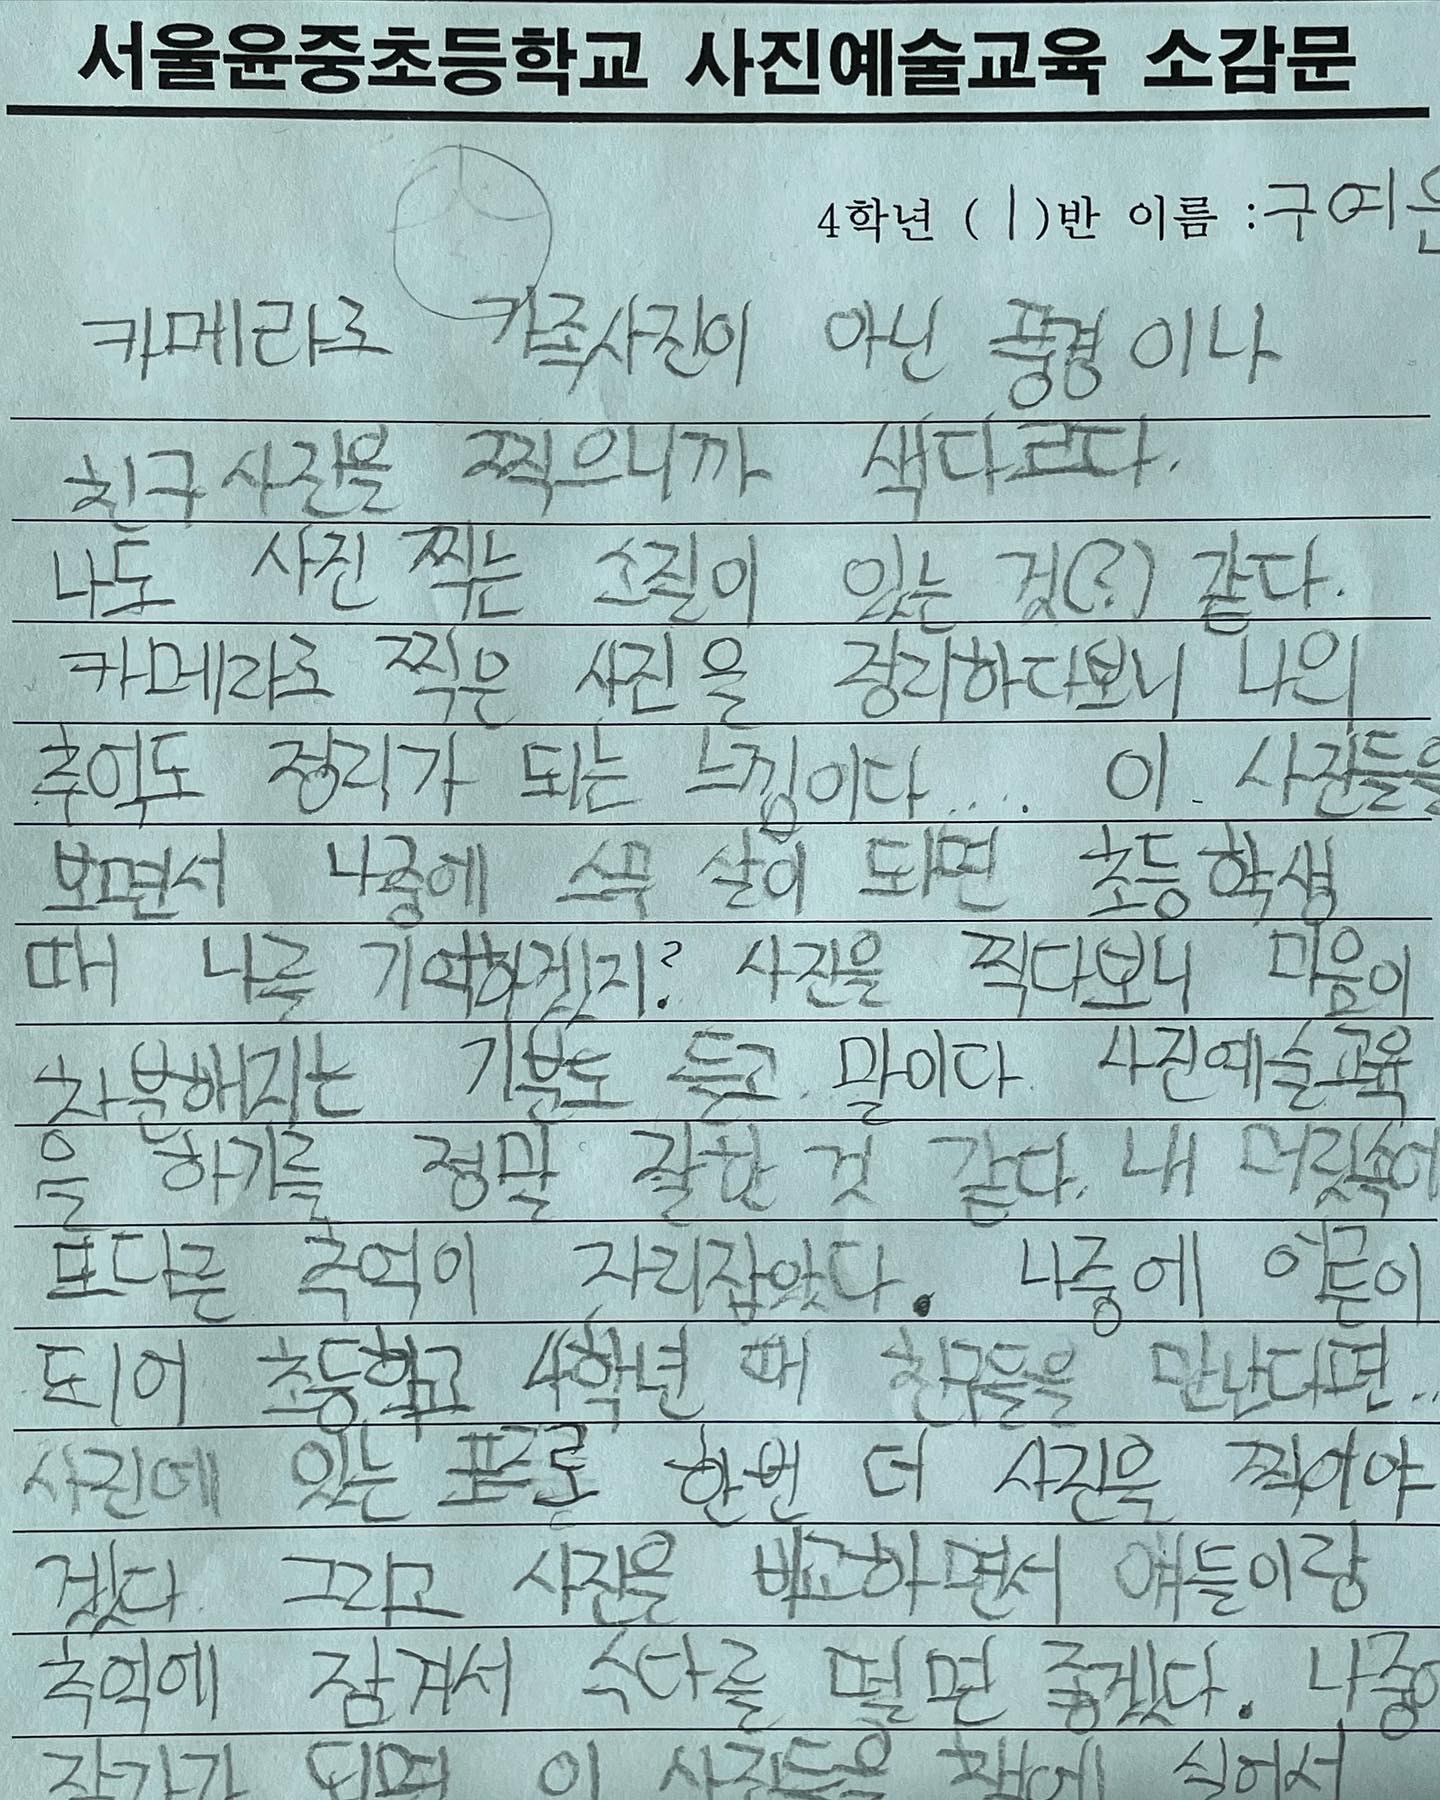 서울윤중초등학교 사진예술교육 소감문
4학년 (1)반 이름 : 구여은
카메라로 가족사진이 아닌 풍경이나
친구 사진을 찍으니까 색다르다.
나도 사진 찍는 소질이 있는 것(?) 같다.
카메라로 찍은 사진을 정리하다보니 나의
추억도 정리가 되는 느낌이다.... 이 사진들을
보면서 나중에 스무 살이 되면 초등학생
때 나를 기억하겠지? 사진을 찍다보니 마음이
차분해지는 기분도 들고 말이다. 사진예술교육
을 하기를 정말 잘한 것 같다. 내 머릿속에
또다른 추억이 자리잡았다. 나중에 어른이
되어 초등학교 4학년 때 친구들을 만난다면..
사진에 있는 포즈로 한번 더 사진을 찍어야
겠다. 그리고 사진을 비교하면서 얘들이랑
추억에 잠겨서 수다를 떨면 좋겠다. 나중에
작가가 되면 이 사진들을 책에 실어서